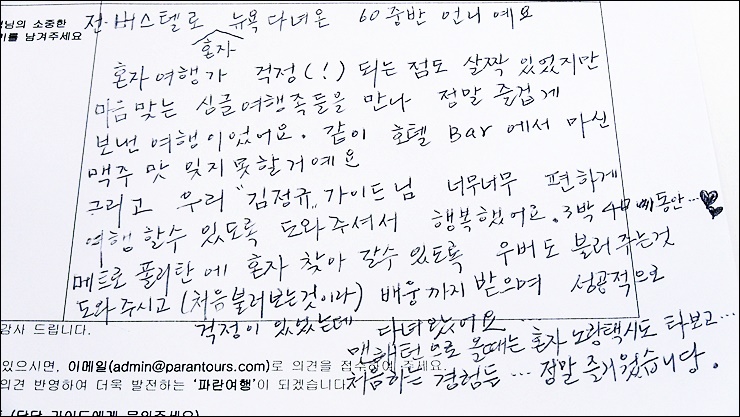 님의 소중한
기를 남겨주세요
전. 버스텔로 뉴욕 다녀온 60중반 언니예요
혼자
혼자 여행가 걱정(!) 되는 점도 살짝 있었지만
마음 맞는 싱글여행족들을 만나 정말 즐겁게
보낸 여행이었어요. 같이 호텔 Bar에서 마신
맥주 맛 잊지못할거예요
그리고 우리 "김정규" 가이드님 너무너무 편하게
여행 할수 있도록 도와주셔서 행복했어요. 3박4日 동안... ♥
메트로폴리탄에 혼자 찾아 갈수있도록 우버도 불러주는것
도와주시고 (처음불러보는것이라) 배웅까지 받으며 성공적으로
걱정이 있었는데 다녀왔어요
감사 드립니다.
맨해턴으로 올때는 혼자 노랑택시도 타보고...
있으시면, 이메일(admin@parantours.com)로 의견을 접수하여 주세요.
처음하는 경험등 ... 정말 즐거웠습니다.
의견 반영하여 더욱 발전하는 '파란여행'이 되겠습니다.